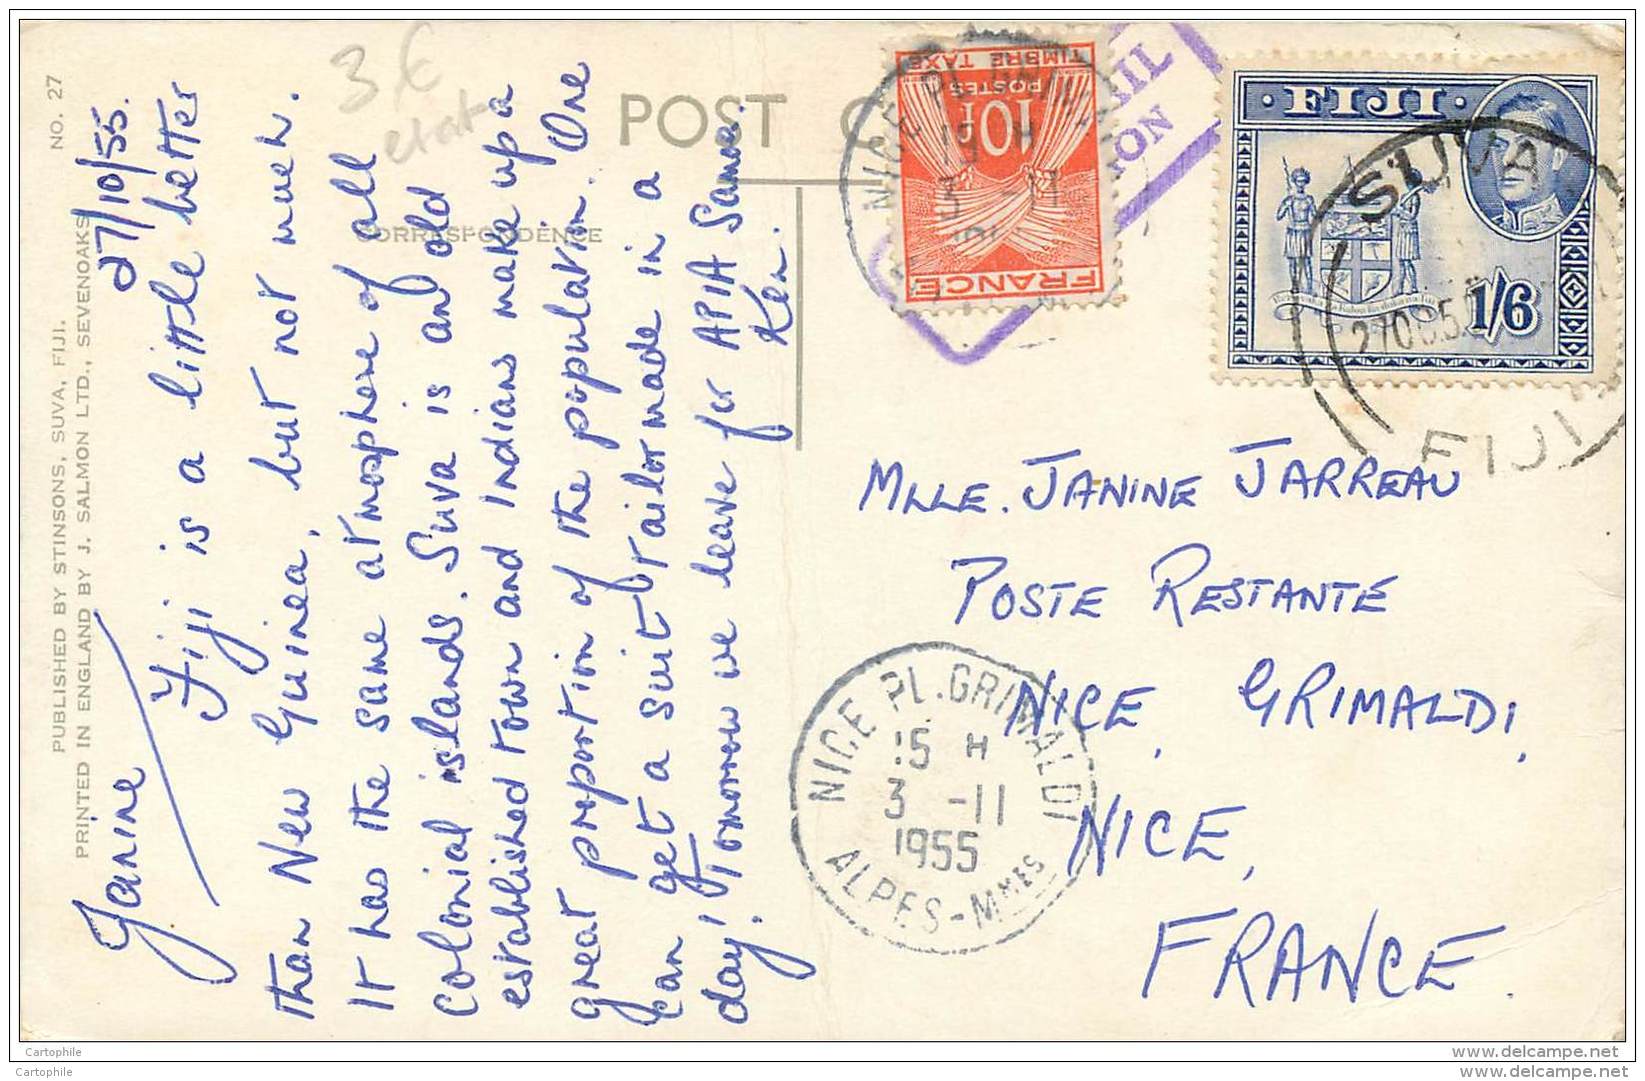 NO. 27
PUBLISHED BY STINSONS, SUVA, FIJI.
PRINTED IN ENGLAND BY J. SALMON LTD., SEVENOAKS
POST C
CORRESPONDENCE
3 €
etat
27/10/55.
Janine
Fiji is a little better
than New Guinea, but not much.
It has the same atmosphere of all
colonial islands. Suva is an old
established town and Indians make up a
great proportion of the population. One
can get a suit tailormade in a
day! Tomorrow we leave for APIA Samoa.
Ken.
FRANCE
10F
POSTES
TIMBRE TAXE
NICE PL. GRIMALDI
15 H
3 -11
AIL
ION
FIJI
1/6
SUVA
27OC55
FIJI
MLLE. JANINE JARREAU
POSTE RESTANTE
NICE, GRIMALDI,
NICE,
FRANCE.
NICE PL. GRIMALDI
15 H
3 -11
1955
ALPES-MMES
Cartophile
Cartophile
www.delcampe.net
www.delcampe.net